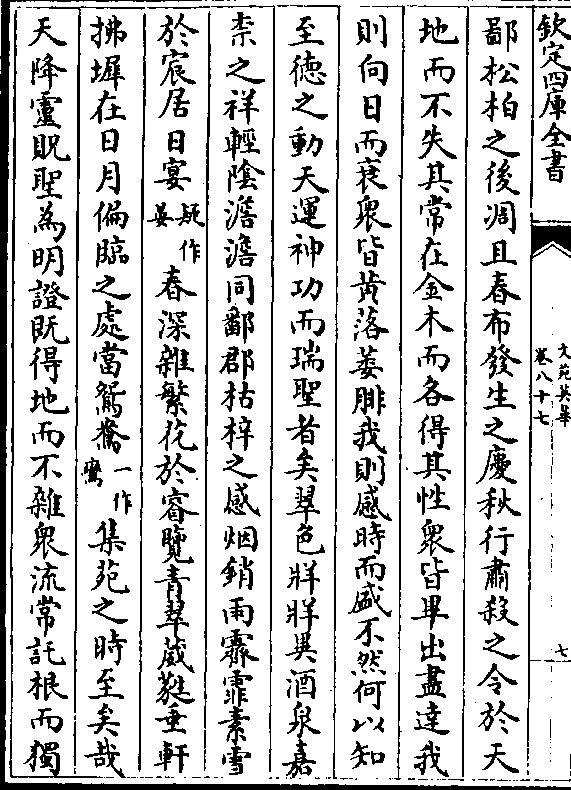 欽定四庫全書
文苑英華
卷八十七
七
鄙松柏之後凋且春布發生之慶秋行肅殺之令於天
地而不失其常在金木而各得其性衆皆畢出盡達我
則向日而衰衆皆黄落萎腓我則感時而盛不然何以知
至德之動天運神功而瑞聖者矣翠色牂牂異酒泉嘉
柰之祥輕陰澹澹同鄱郡枯梓之感烟銷雨霽霏素雪
於宸居日宴疑作晏春深雜繁花於睿覽青翠葳蕤垂軒
拂墀在日月偏臨之處當鴛鴦一作鸞集苑之時至矣哉
天降靈貺聖為明證既得地而不雜衆流常託根而獨